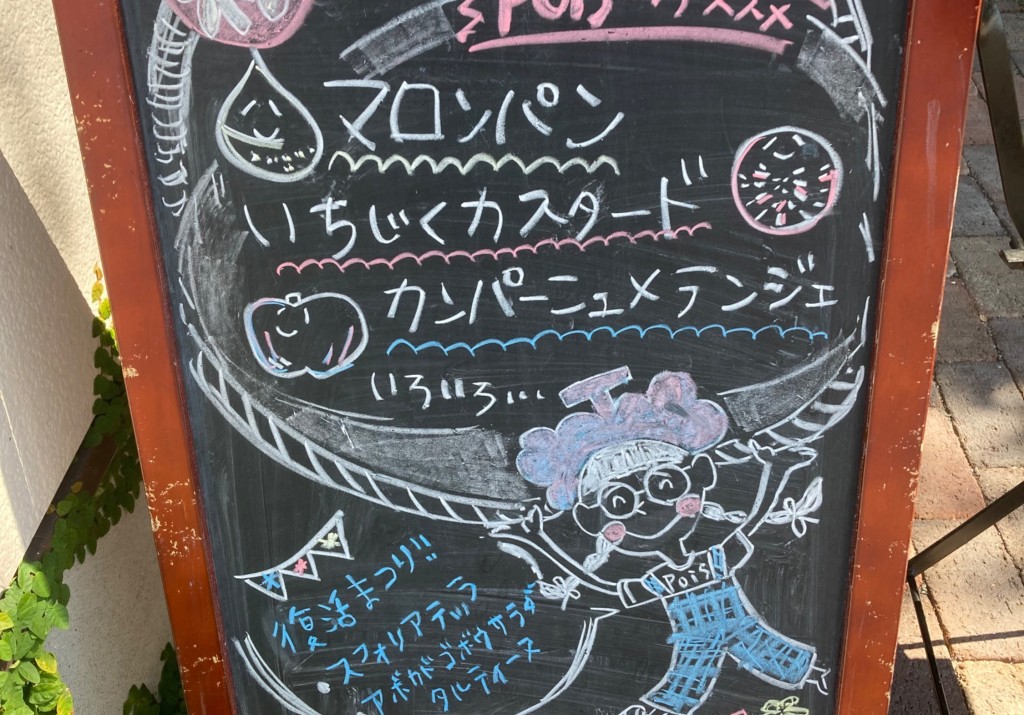 Pois オススメ
マロンパン
いちじくカスタード
カンパーニュメテンジェ
いろいろ...
Pois
復活まつり!!
スフォリアテッラ
アボガゴボウサラダ
タルティーヌ